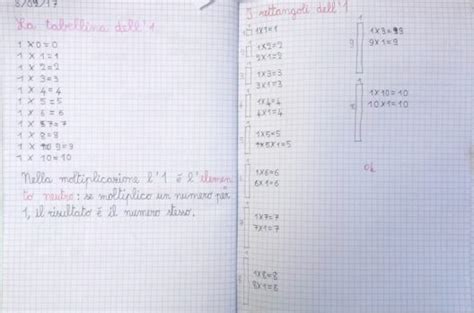 8/09/17
La tabellina dell'1
1 X 0 = 0
1 X 1 = 1
1 X 2 = 2
1 X 3 = 3
1 X 4 = 4
1 X 5 = 5
1 X 6 = 6
1 X 7 = 7
1 X 8 = 8
1 X 9 = 9
1 X 10 = 10
Nella moltiplicazione l'1 è l'elemen
to neutro: se moltiplico un numero per
1, il risultato è il numero stesso.
I rettangoli dell'1
1X1=1
1X2=2
2X1=2
1X3=3
3X1=3
1X4=4
4X1=4
1X5=5
5X1=5
1X6=6
6X1=6
1X7=7
7X1=7
1X8=8
8X1=8
1X9=9
9X1=9
1X10=10
10X1=10
ok